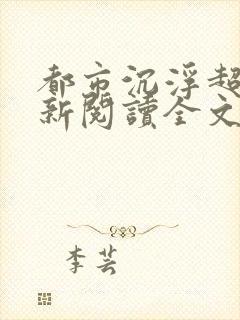 都市沉浮超
新閱讀全文
李芸